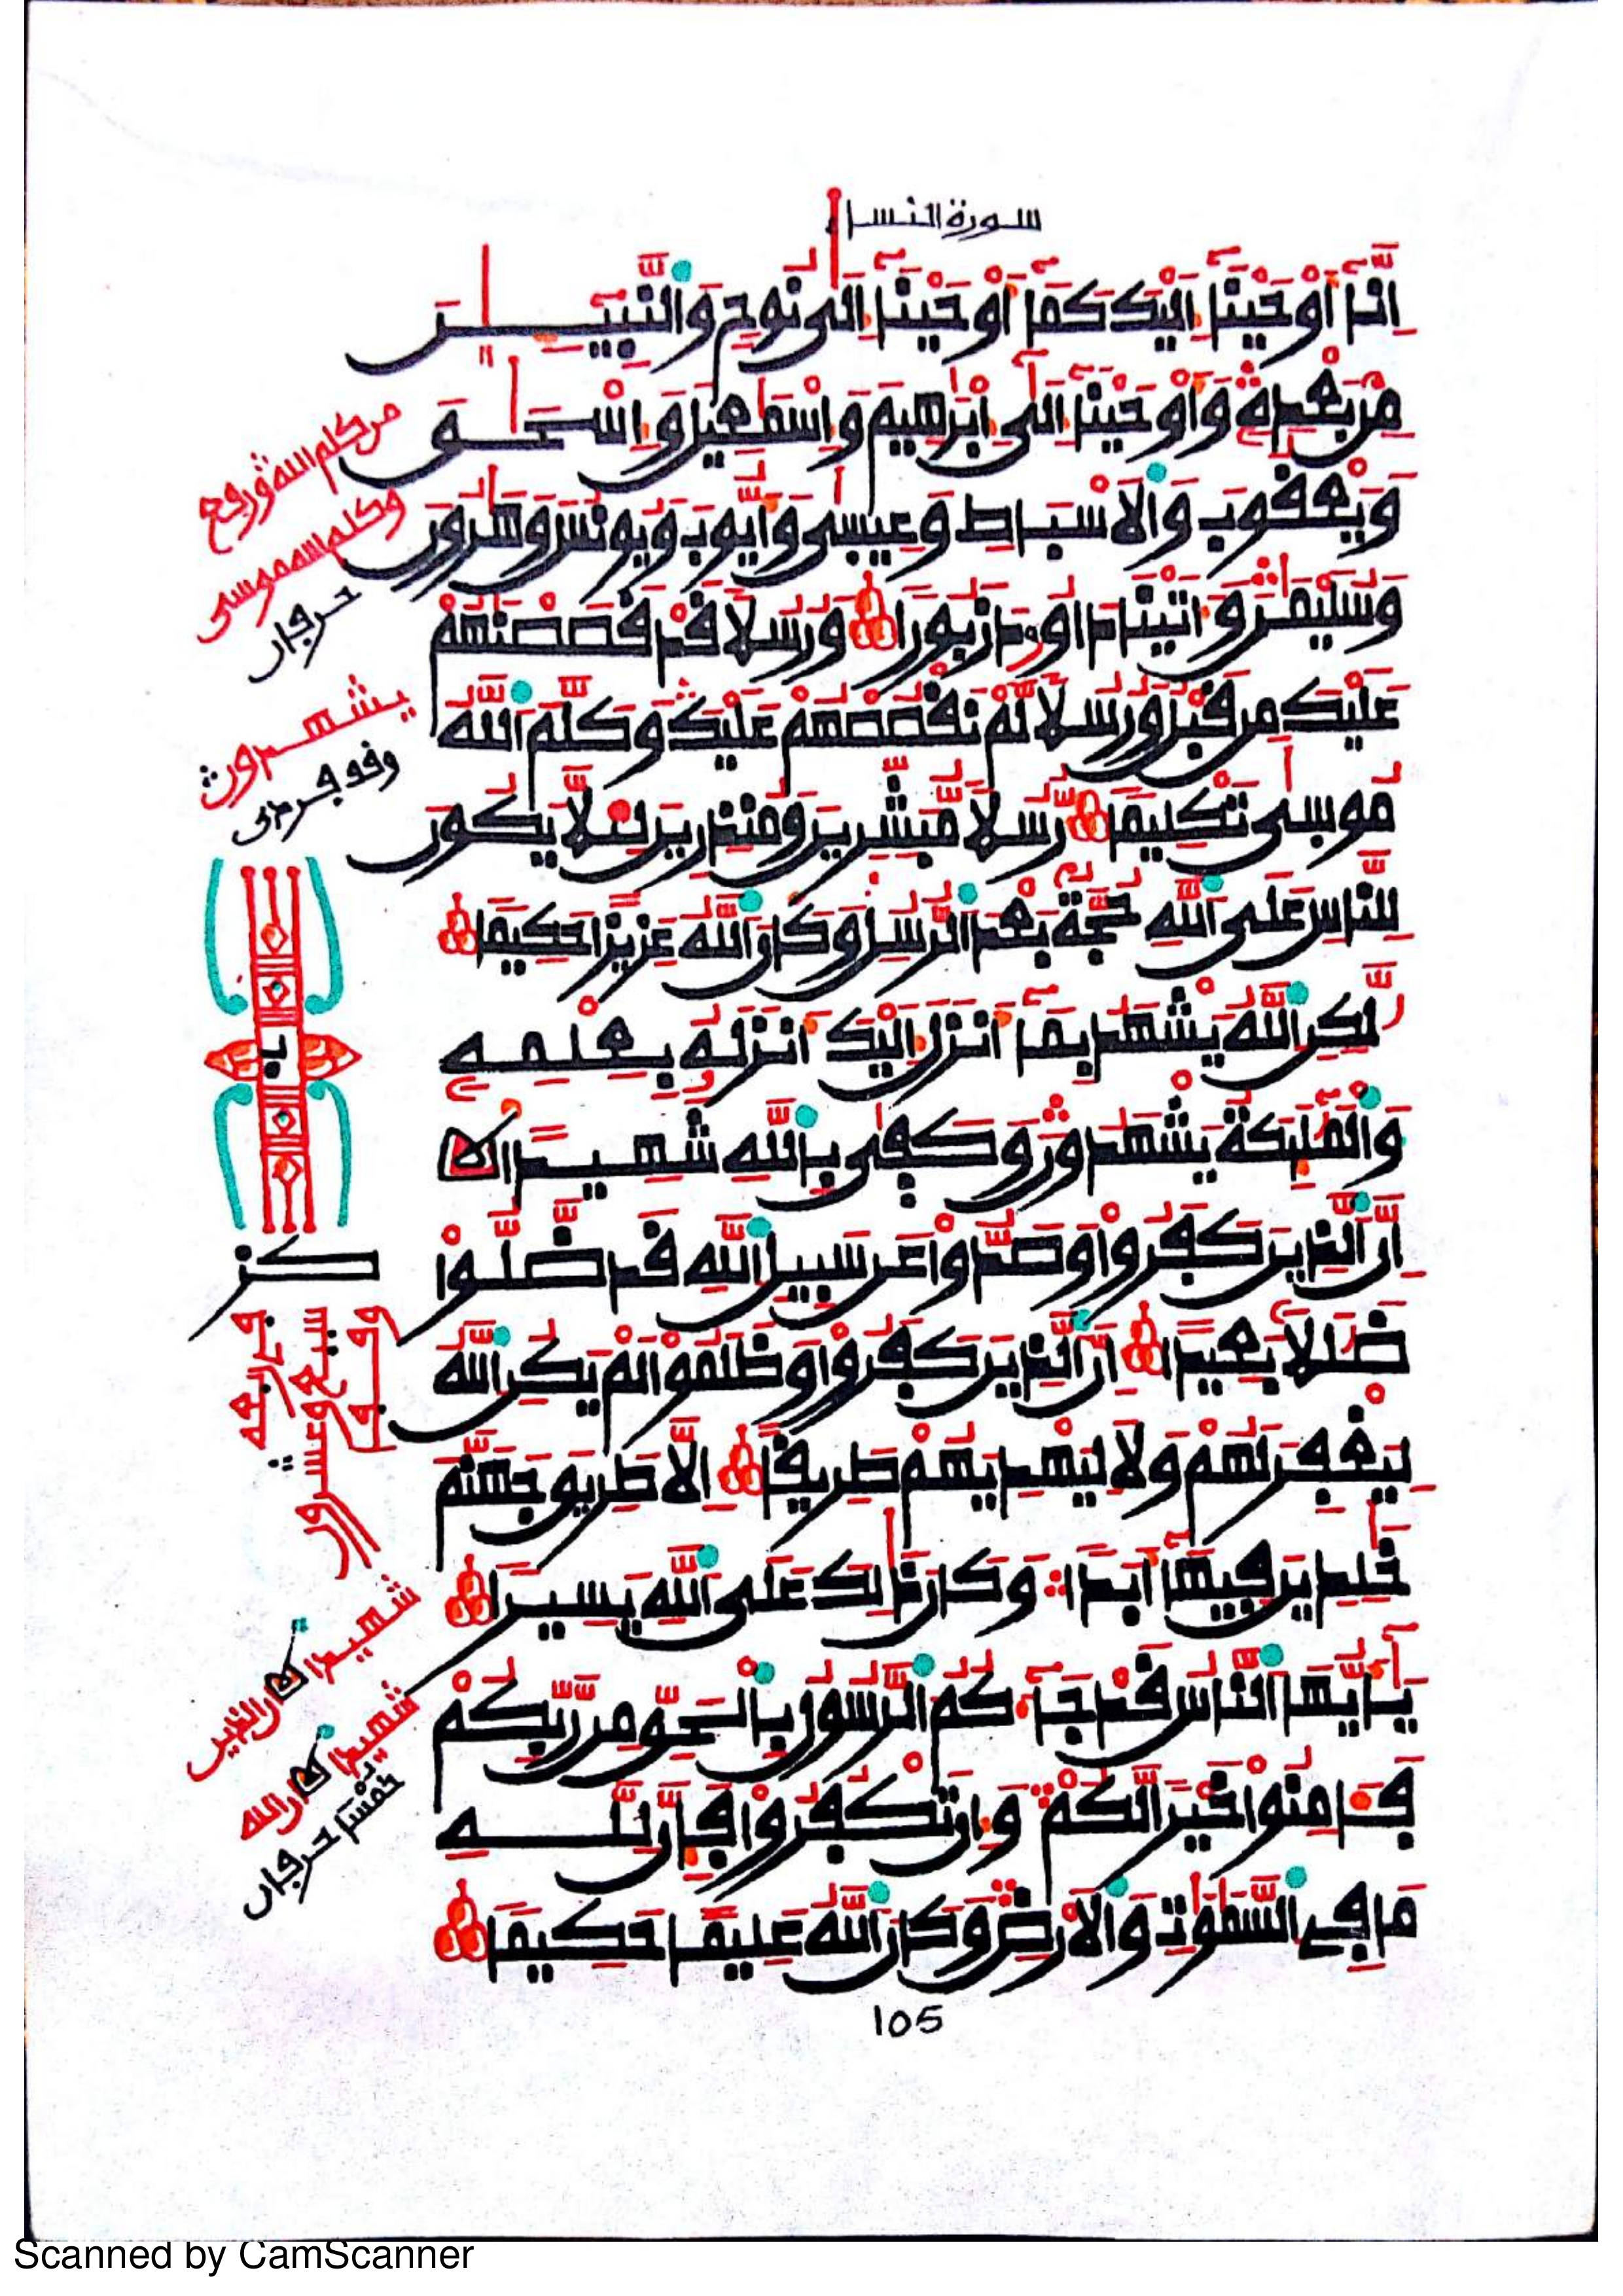 سورة النساء
إِنَّآ أَوْحَيْنَآ إِلَيْكَ كَمَآ أَوْحَيْنَآ إِلَىٰ نُوحٍ وَالنَّبِيِّـينَ
مِنۢ بَعْدِهِۦ وَأَوْحَيْنَآ إِلَىٰٓ إِبْرَٰهِيمَ وَإِسْمَٰعِيلَ وَإِسْحَٰقَ
وَيَعْقُوبَ وَالْأَسْبَاطِ وَعِيسَىٰ وَأَيُّوبَ وَيُونُسَ وَهَٰرُونَ
وَسُلَيْمَٰنَ وَءَاتَيْنَا دَاوُۥدَ زَبُورًا وَرُسُلًا قَدْ قَصَصْنَٰهُمْ
عَلَيْكَ مِن قَبْلُ وَرُسُلًا لَّمْ نَقْصُصْهُمْ عَلَيْكَ وَكَلَّمَ اللَّهُ
مُوسَىٰ تَكْلِيمًا رُّسُلًا مُّبَشِّرِينَ وَمُنذِرِينَ لِيَلَّا يَكُونَ
لِلنَّاسِ عَلَى اللَّهِ حُجَّةٌۢ بَعْدَ الرُّسُلِ وَكَانَ اللَّهُ عَزِيزًا حَكِيمًا
لَّٰكِنِ اللَّهُ يَشْهَدُ بِمَآ أَنزَلَ إِلَيْكَ أَنزَلَهُۥ بِعِلْمِهِۦ
وَالْمَلَٰٓئِكَةُ يَشْهَدُونَ وَكَفَىٰ بِاللَّهِ شَهِيدًا
إِنَّ الَّذِينَ كَفَرُوا وَصَدُّوا عَن سَبِيلِ اللَّهِ قَد ضَّلُّوا
ضَلَٰلًا بَعِيدًا إِنَّ الَّذِينَ كَفَرُوا وَظَلَمُوا لَمْ يَكُنِ اللَّهُ
لِيَغْفِرَ لَهُمْ وَلَا لِيَهْدِيَهُمْ طَرِيقًا إِلَّا طَرِيقَ جَهَنَّمَ
خَٰلِدِينَ فِيهَآ أَبَدًا وَكَانَ ذَٰلِكَ عَلَى اللَّهِ يَسِيرًا
يَٰٓأَيُّهَا النَّاسُ قَد جَّآءَكُمُ الرَّسُولُ بِالْحَقِّ مِن رَّبِّكُمْ
فَـَٔامِنُوا خَيْرًا لَّكُمْ وَإِن تَكْفُرُوا فَإِنَّ لِلَّهِ
مَا فِي السَّمَٰوَٰتِ وَالْأَرْضِ وَكَانَ اللَّهُ عَلِيمًا حَكِيمًا
105
من كلم الله ورفع
وكلم الله موسى
حرفان
يشهدون
شهيدا ان الذين
شهيدا ان الله
خمسا حرفان
Scanned by CamScanner